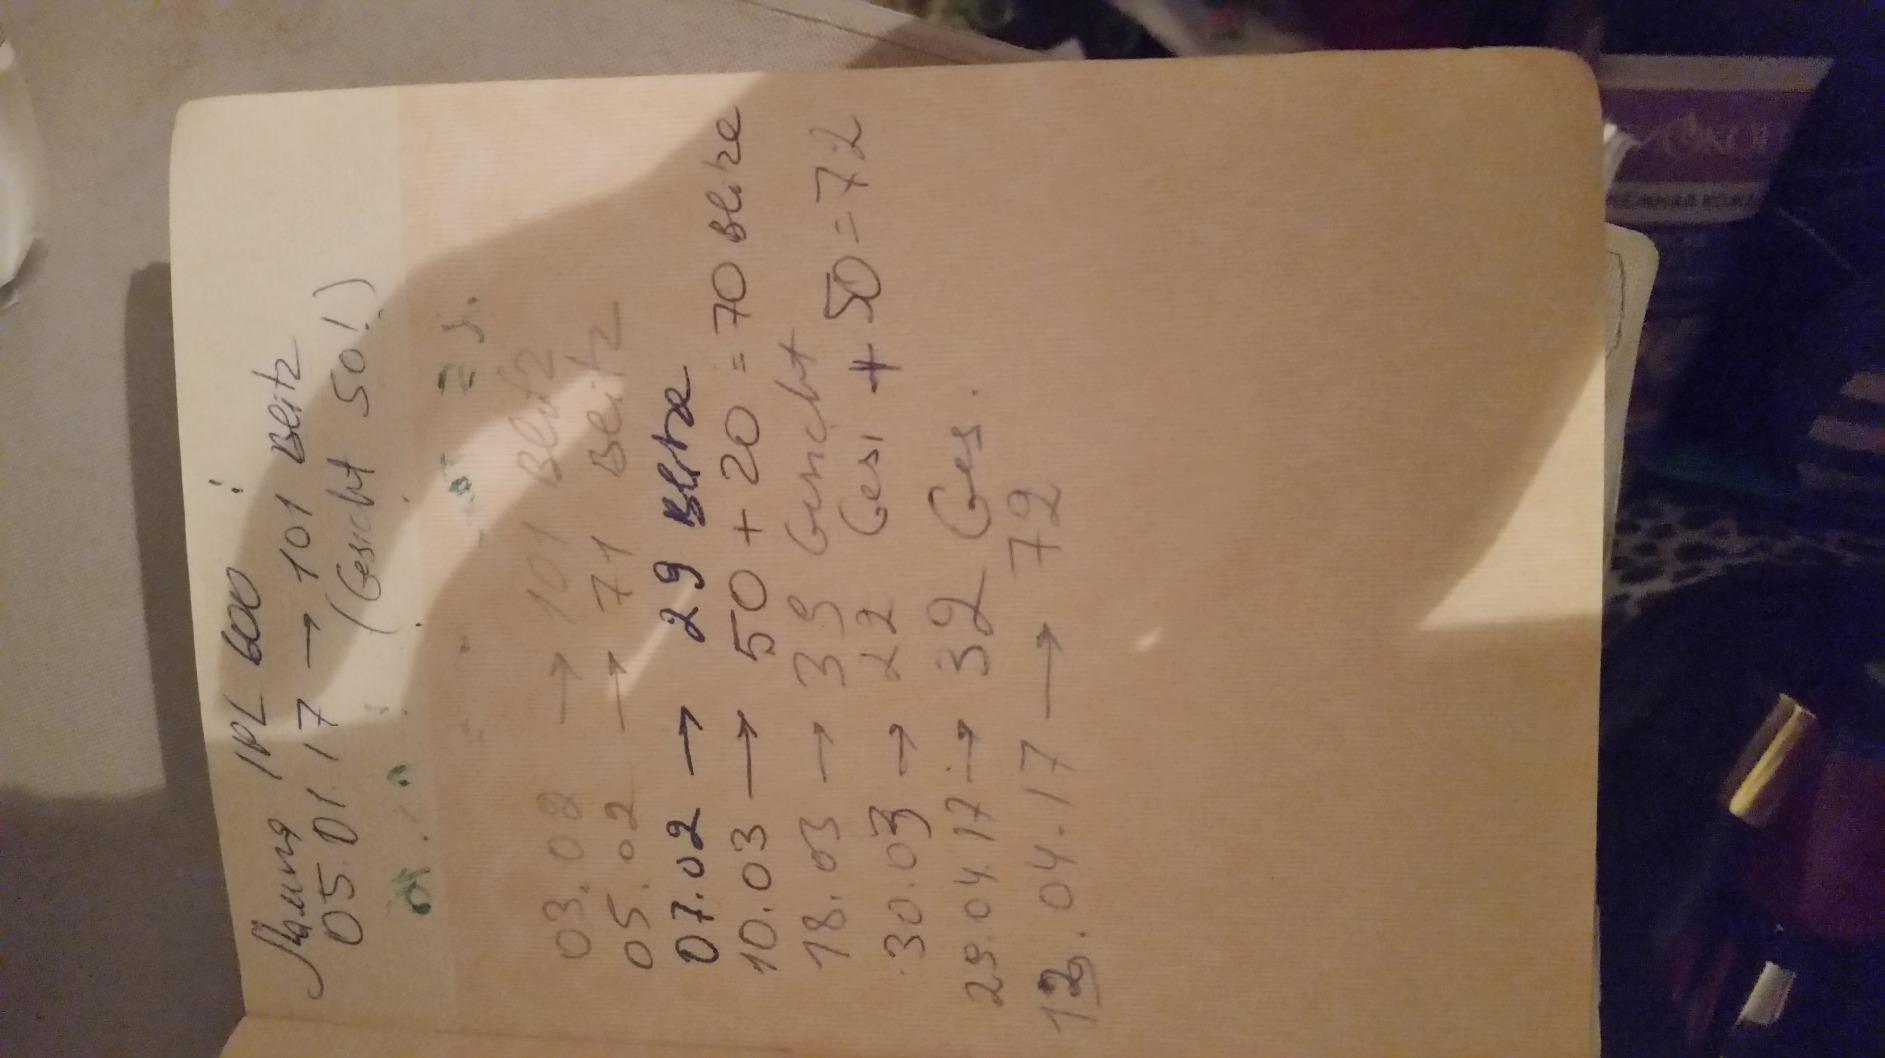 Лампа IPL 600 :
05.01.17 → 101 Blitz
(Gesicht 50!)
03.02 → 101 Blitz
05.02 → 71 Blitz
07.02 → 29 Blitze
10.03 → 50 + 20 = 70 Blitze
18.03 → 39 Gesicht
30.03 → 22 Gesi + 50 = 72
29.04.17 → 32 Ges.
12.04.17 → 72